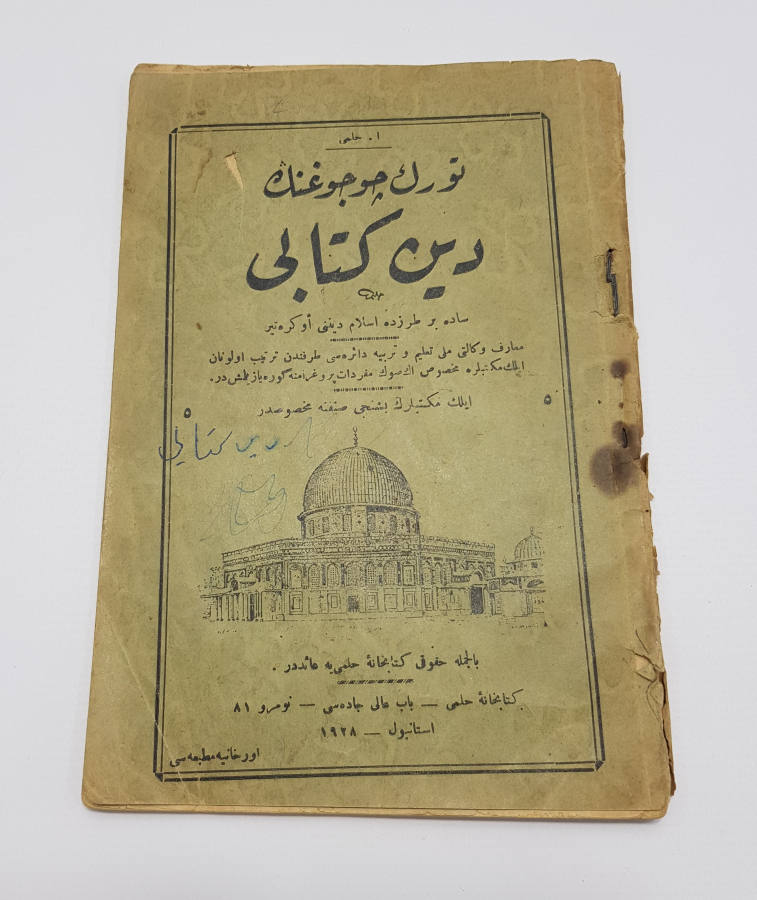 ا. حلمی
تورك چوجوغنڭ
دين كتابی
ساده بر طرزده اسلام ديننی أوكره‌تير
معارف وكالتی ملی تعليم و تربيه دائره‌سی طرفندن ترتيب اولونان
ايلك مكتبلره مخصوص اڭ صوڭ مفردات پروغرامنه گوره يازيلمش در.
ايلك مكتبلرك بشنجی صنفنه مخصوصدر
٥ ٥
دين كتابی
بالجمله حقوقی كتابخانهٔ حلمی‌يه عائددر.
كتابخانهٔ حلمی — باب عالی جاده‌سی — نومرو ٨١
استانبول — ١٩٢٨
اورخانيه مطبعه‌سی